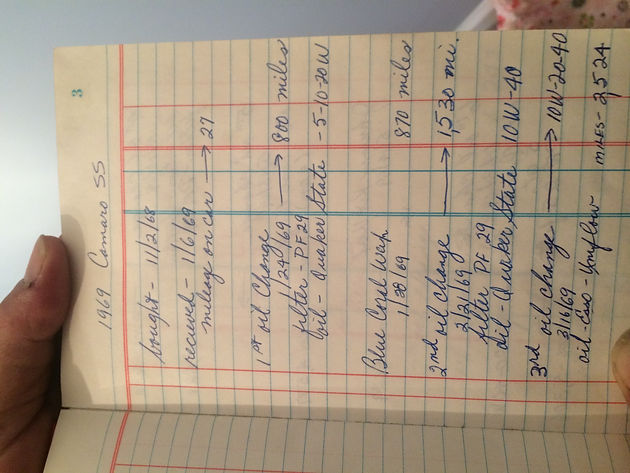 3
1969 Camaro SS
bought - 11/2/68
recieved - 1/6/69
mileage on car → 27
1st oil Change
1/24/69 → 800 miles
filter - PF 29
Oil - Quaker State - 5-10-20W
Blue Coral Wax
1/30/69 870 miles
2nd oil change
2/21/69 → 1,530 mi.
filter PF 29
Oil - Quaker State 10W-40
3rd oil change
3/16/69 → 10W-20-40
oil - Esso - Uniflow MILES - 2,524